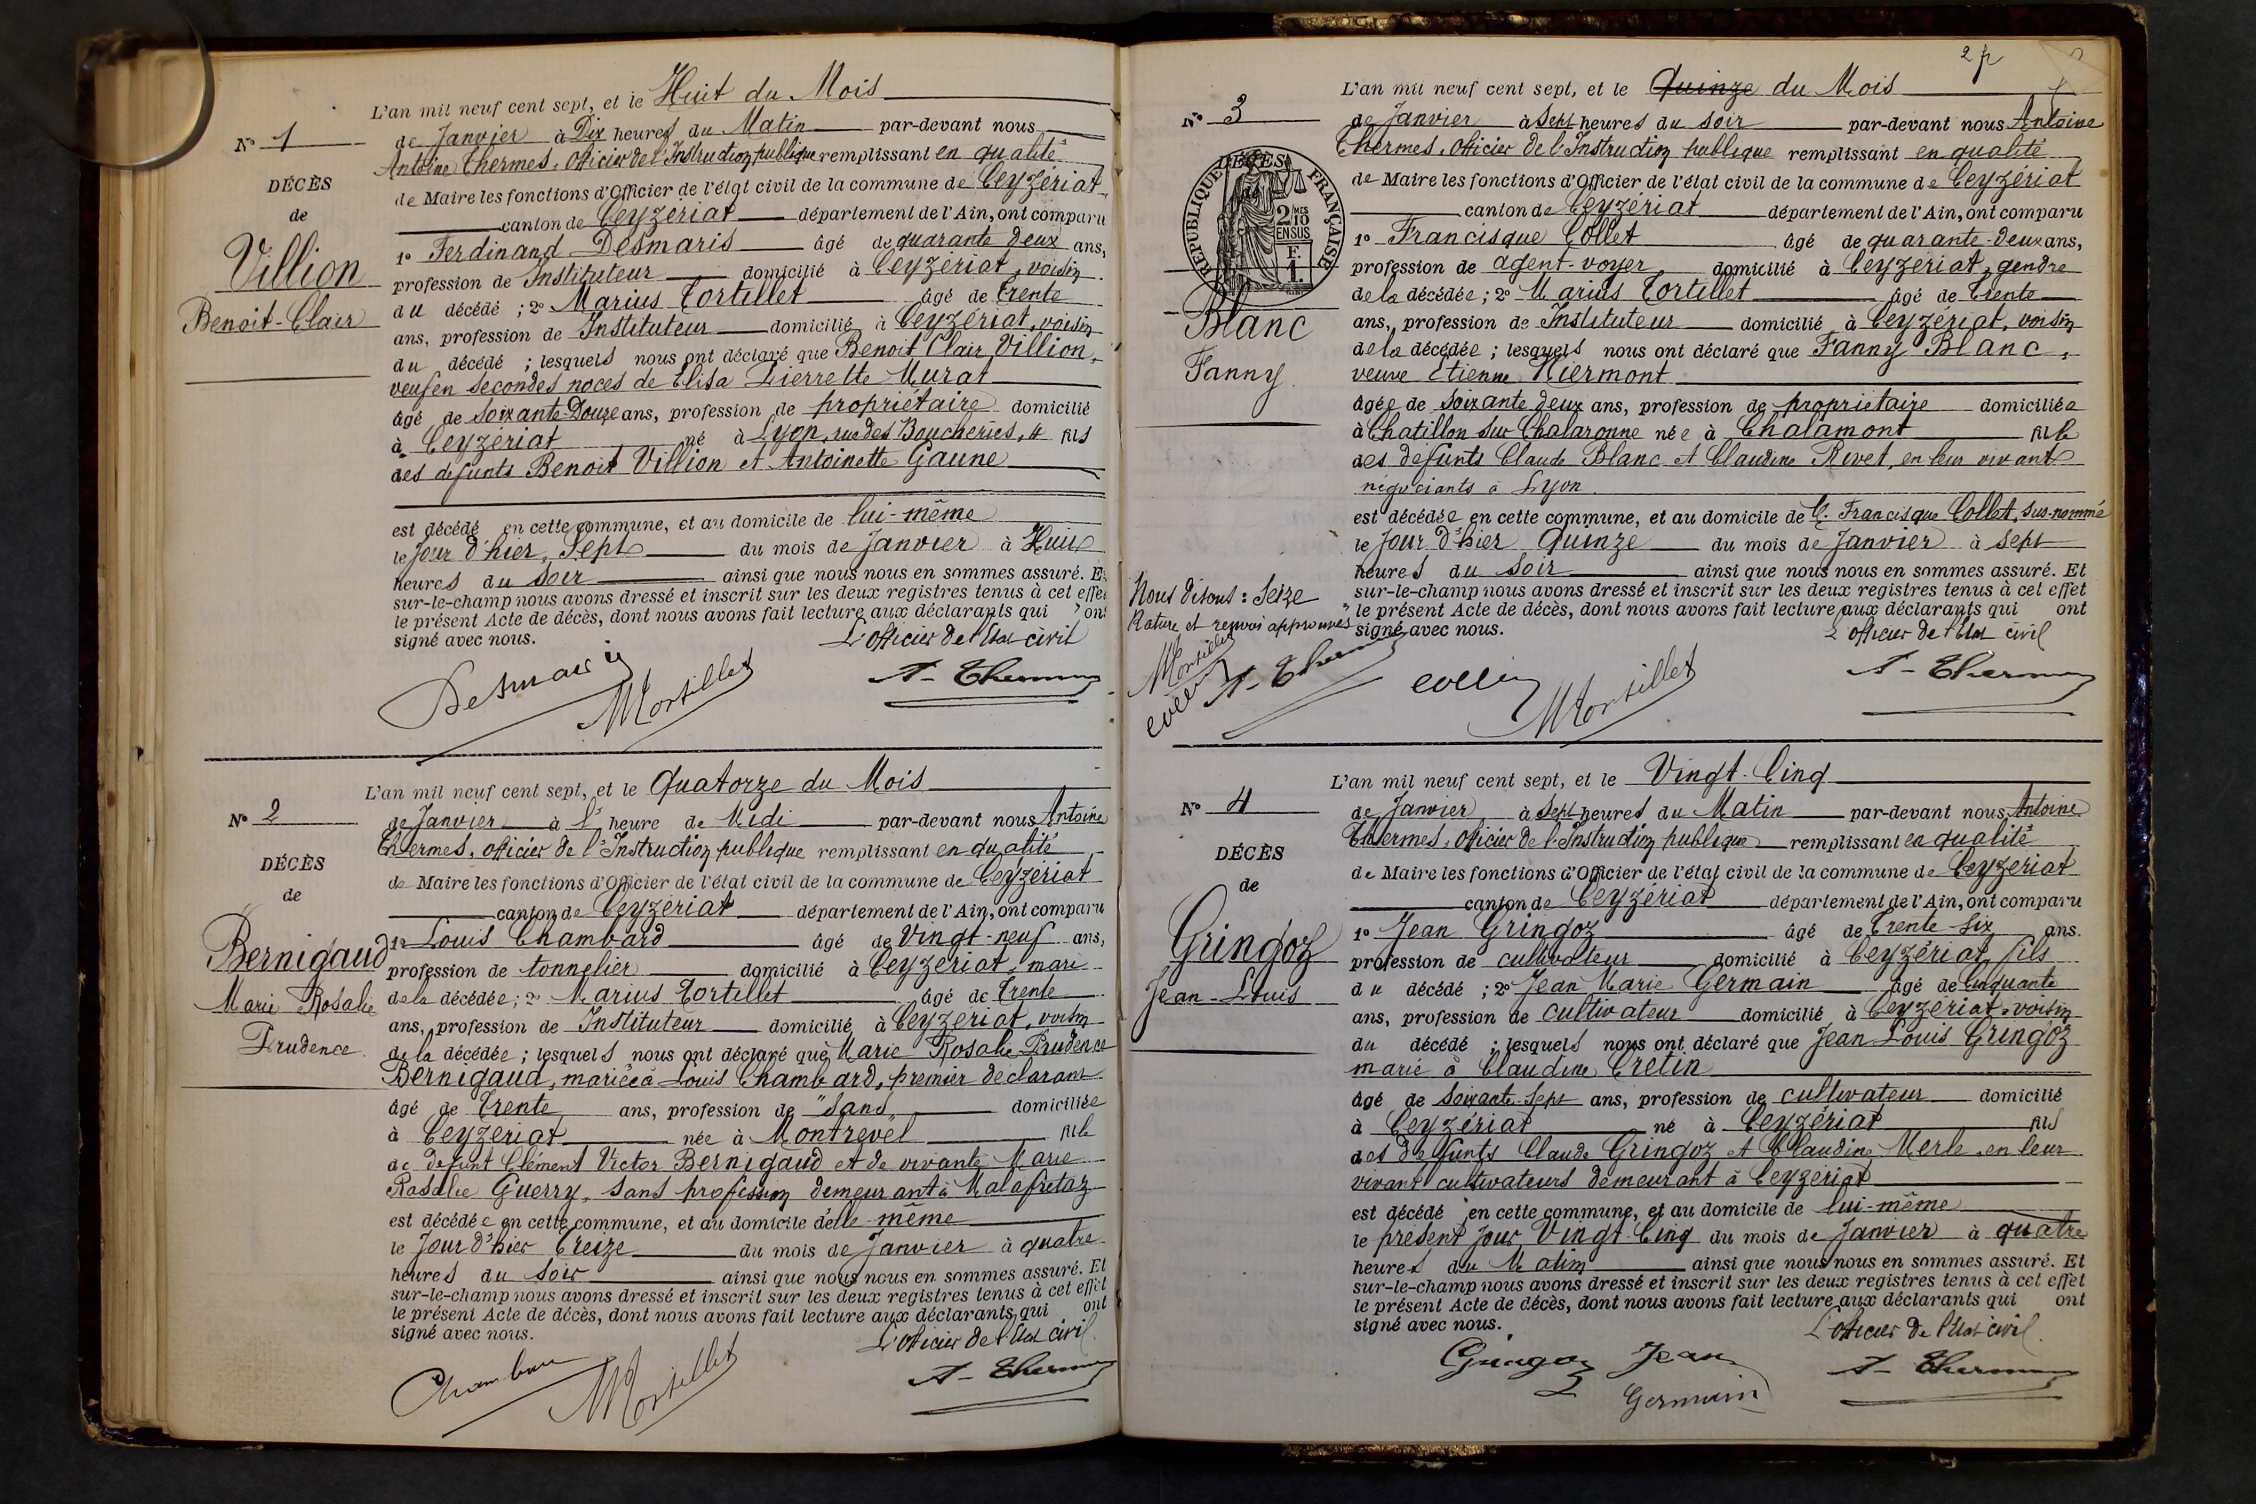 L'an mil neuf cent sept, et le Huit du Mois
N° 1
de Janvier à Dix heures du Matin par-devant nous
Antoine Thermes, Officier de l'Instruction publique remplissant en qualité
DÉCÈS
de Maire les fonctions d'Officier de l'état civil de la commune de Ceyzériat
de
canton de Ceyzériat département de l'Ain, ont comparu
Villion
1° Ferdinand Desmaris âgé de quarante deux ans,
profession de Instituteur domicilié à Ceyzériat, voisin
Benoit-Clair
du décédé ; 2° Marius Tortillet âgé de Trente
ans, profession de Instituteur domicilié à Ceyzériat, voisin
du décédé ; lesquels nous ont déclaré que Benoit Clair Villion,
veuf en secondes noces de Elisa Pierrette Murat
âgé de soixante-Douze ans, profession de propriétaire domicilié
à Ceyzériat né à Lyon, rue des Boucheries, 4 fils
des defunts Benoit Villion et Antoinette Gaune
est décédé en cette commune, et au domicile de lui-même
le Jour d'hier, Sept du mois de Janvier à Huit
heures du Soir ainsi que nous nous en sommes assuré. Et
sur-le-champ nous avons dressé et inscrit sur les deux registres tenus à cet effet
le présent Acte de décès, dont nous avons fait lecture aux déclarants qui ont
signé avec nous. L'officier de l'Etat civil
Desmaris MTortillet A. Thermes
L'an mil neuf cent sept, et le Quatorze du Mois
N° 2
de Janvier à l' heure de Midi par-devant nous Antoine
Thermes, officier de l'Instruction publique remplissant en qualité
DÉCÈS
de Maire les fonctions d'Officier de l'état civil de la commune de Ceyzériat
de
canton de Ceyzériat département de l'Ain, ont comparu
Bernigaud
1° Louis Chambard âgé de Vingt-neuf ans,
profession de tonnelier domicilié à Ceyzériat, mari
Marie Rosalie
de la décédée ; 2° Marius Tortillet âgé de Trente
ans, profession de Instituteur domicilié à Ceyzériat, voisin
Prudence
de la décédée ; lesquels nous ont déclaré que Marie Rosalie Prudence
Bernigaud, mariée à Louis Chambard, premier declarant
âgé de Trente ans, profession de "Sans" domiciliée
à Ceyzériat née à Montrevel fille
de defunt Clément Victor Bernigaud et de vivante Marie
Rosalie Guerry, sans profession demeurant à Malafretaz
est décédée en cette commune, et au domicile d'elle-même
le Jour d'hier Treize du mois de Janvier à quatre
heures du Soir ainsi que nous nous en sommes assuré. Et
sur-le-champ nous avons dressé et inscrit sur les deux registres tenus à cet effet
le présent Acte de décès, dont nous avons fait lecture aux déclarants qui ont
signé avec nous. L'officier de l'Etat civil
Chambard MTortillet A. Thermes
2 p
L'an mil neuf cent sept, et le Quinze du Mois
N° 3
de Janvier à Sept heures du Soir par-devant nous Antoine
Thermes, Officier de l'Instruction publique remplissant en qualité
DÉCÈS
RÉPUBLIQUE FRANÇAISE
2/10 MES
EN SUS
F.
1
de Maire les fonctions d'Officier de l'état civil de la commune de Ceyzériat
canton de Ceyzériat département de l'Ain, ont comparu
1° Francisque Collet âgé de quarante-deux ans,
profession de agent-voyer domicilié à Ceyzériat, gendre
de la décédée ; 2° Marius Tortillet âgé de Trente
Blanc
ans, profession de Instituteur domicilié à Ceyzériat, voisin
de la décédée ; lesquels nous ont déclaré que Fanny Blanc,
Fanny
veuve Etienne Niermont
âgée de Soixante deux ans, profession de propriétaire domiciliée
à Chatillon sur Chalaronne née à Chalamont fille
des defunts Claude Blanc et Claudine Rivet, en leur vivant
négociants à Lyon
est décédée en cette commune, et au domicile de M. Francisque Collet, sus-nommé
le Jour d'hier Quinze du mois de Janvier à Sept
heures du Soir ainsi que nous nous en sommes assuré. Et
Nous disons : Seize
sur-le-champ nous avons dressé et inscrit sur les deux registres tenus à cet effet
Rature et renvoi approuvés
le présent Acte de décès, dont nous avons fait lecture aux déclarants qui ont
signé avec nous. L'officier de l'Etat civil
MTortillet Collet A. Thermes Collet MTortillet A. Thermes
L'an mil neuf cent sept, et le Vingt-Cinq
N° 4
de Janvier à Sept heures du Matin par-devant nous Antoine
Thermes, Officier de l'Instruction publique remplissant en qualité
DÉCÈS
de Maire les fonctions d'Officier de l'état civil de la commune de Ceyzériat
de
canton de Ceyzériat département de l'Ain, ont comparu
Gringoz
1° Jean Gringoz âgé de Trente-six ans.
profession de cultivateur domicilié à Ceyzériat, fils
Jean-Louis
du décédé ; 2° Jean Marie Germain âgé de Cinquante
ans, profession de cultivateur domicilié à Ceyzériat, voisin
du décédé ; lesquels nous ont déclaré que Jean Louis Gringoz
marié à Claudine Cretin
âgé de soixante-sept ans, profession de cultivateur domicilié
à Ceyzériat né à Ceyzériat fils
des defunts Claude Gringoz et Claudine Merle, en leur
vivant cultivateurs demeurant à Ceyzériat
est décédé en cette commune, et au domicile de lui-même
le présent jour, Vingt-Cinq du mois de Janvier à quatre
heures du Matin ainsi que nous nous en sommes assuré. Et
sur-le-champ nous avons dressé et inscrit sur les deux registres tenus à cet effet
le présent Acte de décès, dont nous avons fait lecture aux déclarants qui ont
signé avec nous. L'officier de l'Etat civil
Gringoz Jean A. Thermes
Germain